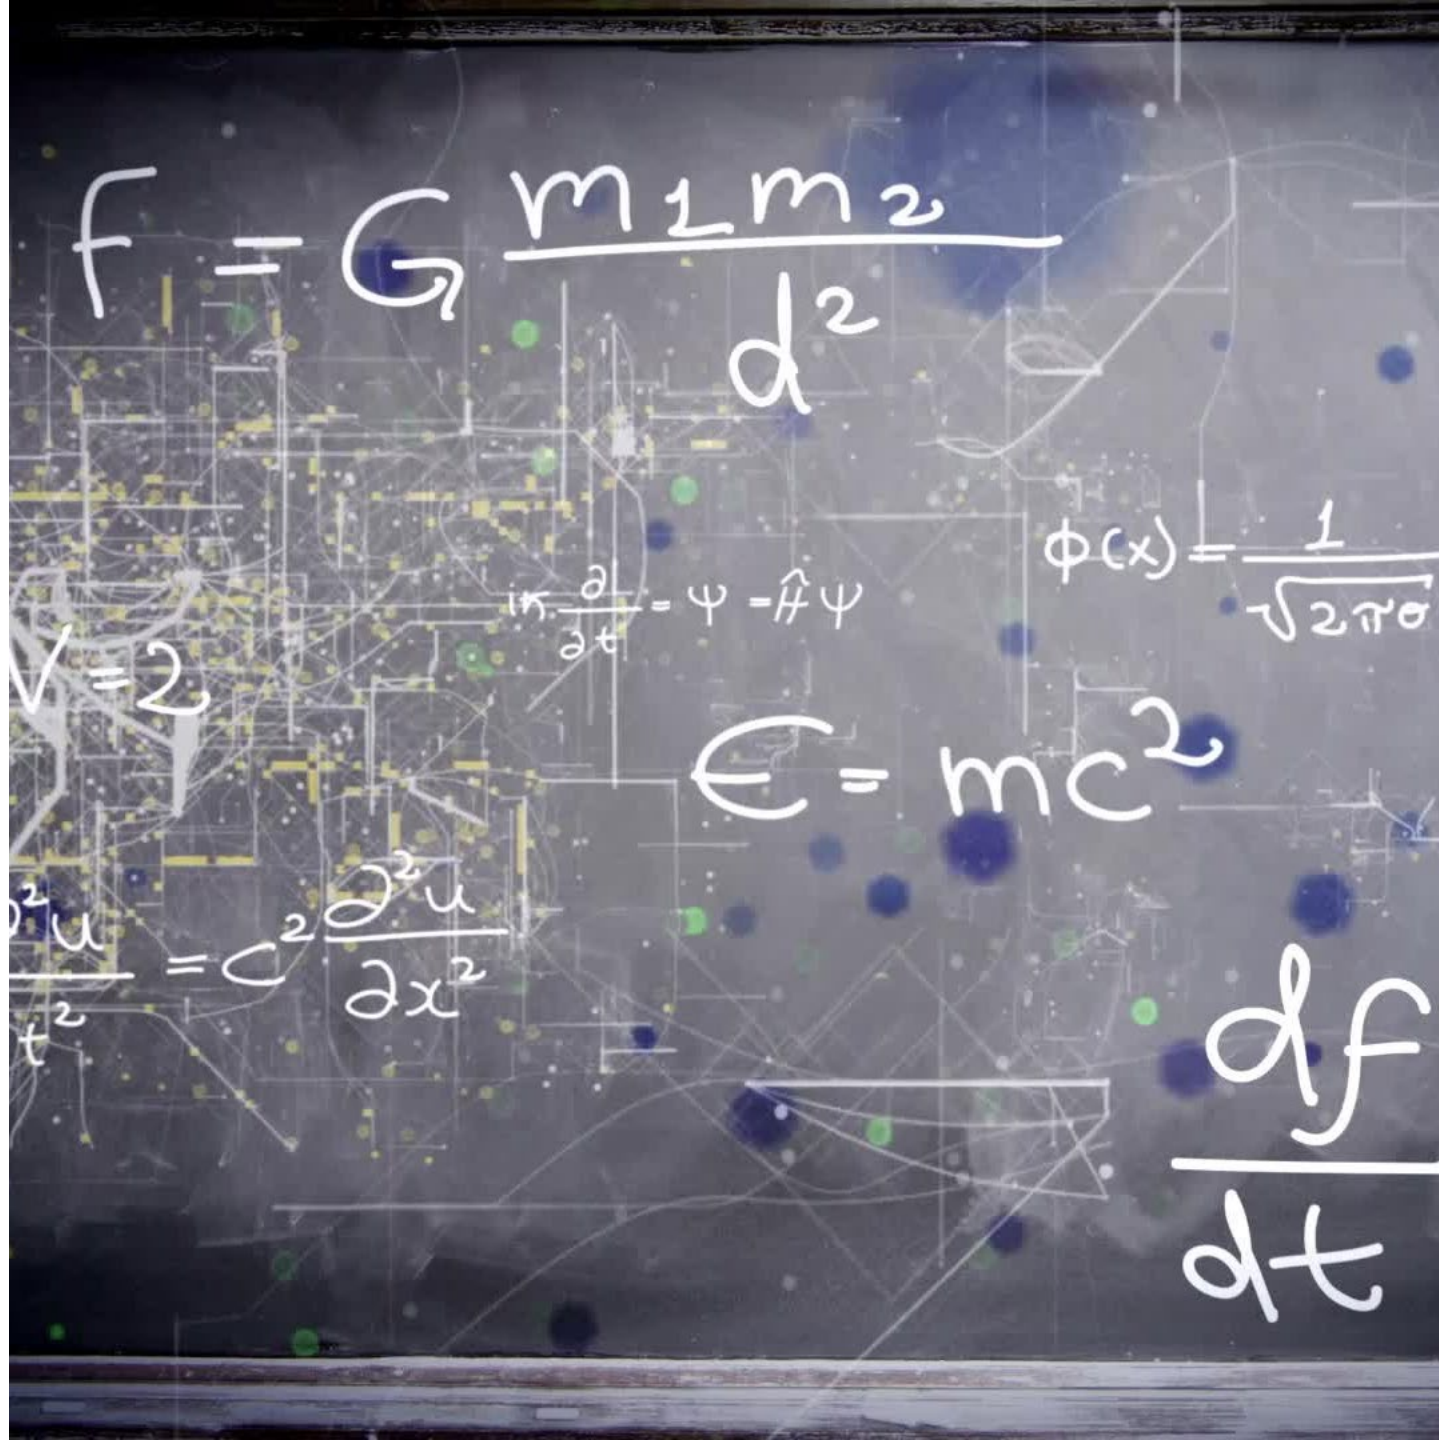 F = G m1m2 / d²
ϕ(x) = 1 / √2πσ
iħ ∂/∂t = Ψ = ĤΨ
V = 2
E = mc²
∂²u / t² = c² ∂²u / ∂x²
df / dt